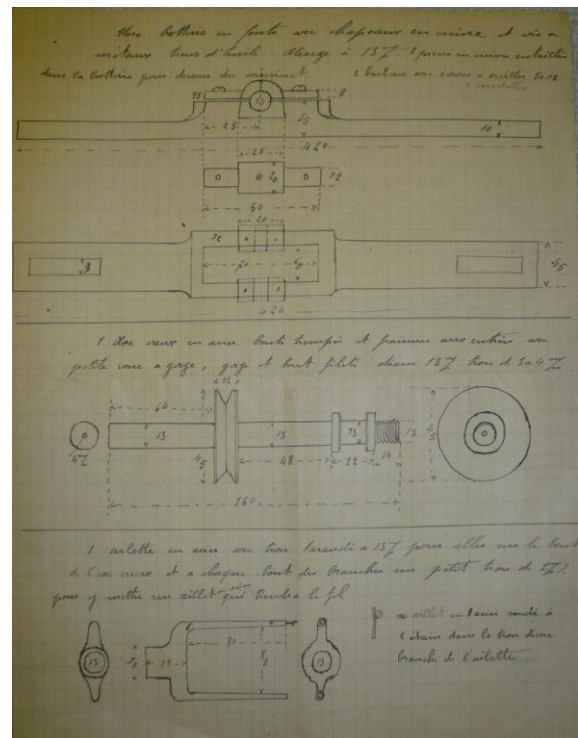 Une bottine en fonte avec chapeaux en cuivre et vis a
métaux trous d'huile. Alésage à 13 % 2 pièces en cuivre entaillées
dans la bottine pour dessous du 2 boulons avec écrous a oreilles
15 13 8
25 45 10
420
25
20 12
50
20
12
70
28 45
420
1 Axe creux en acier bouts trempés et percé aux entier avec
petite roue a gorge, gage et bout fileté diam 13 % trou de 3 a 4 %
12
64
13 13 13 15
4 % 45 48 22 14 45
160
1 ailette en acier avec trou taraudé a 13 % pour aller sur le bout
de l'axe creux et a chaque bout des branches un petit trou de
pour y mettre un œillet qui tiendra le fil
œillet en acier soudé à
l'étain dans le trou d'une
branche de l'ailette
80
13 80 13